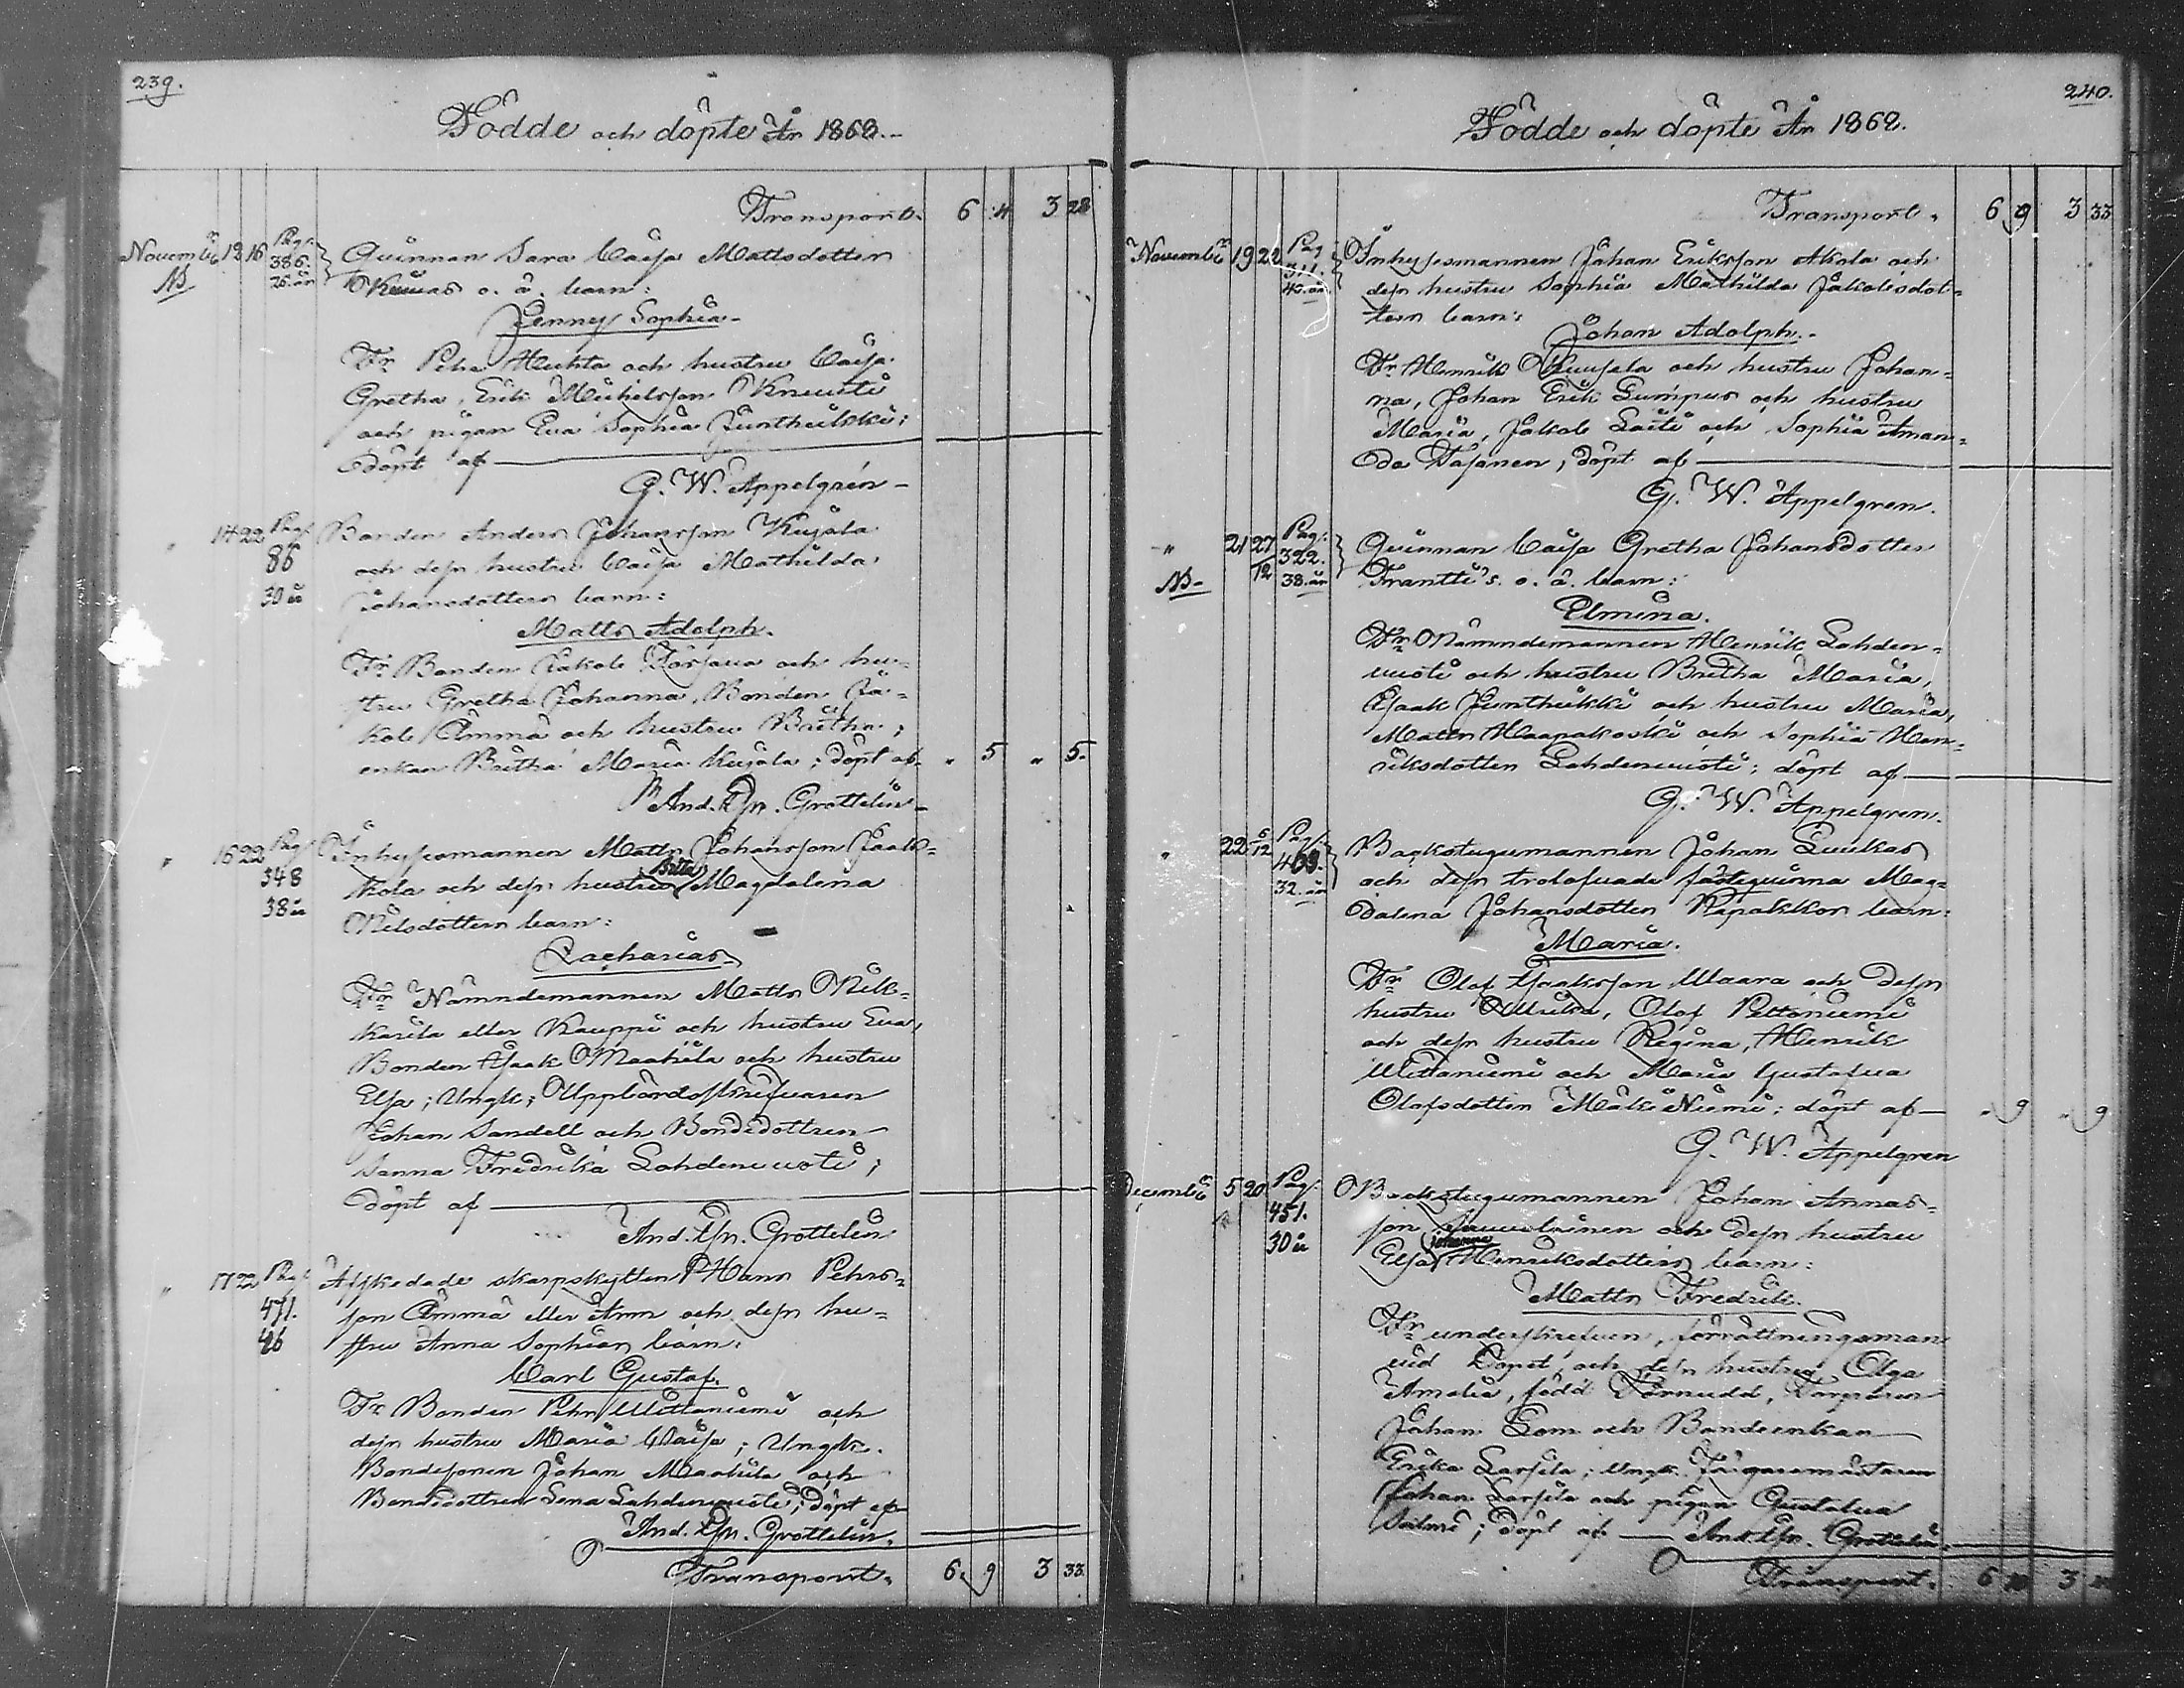 239.
Födde och döpte År 1868.
Transport. 6 4 3 28
Novemb. 13 16 Pag. 386. 26. år Quinnan Sara Caisa Mattsdotter
NB o. ä. barn:
Jenny Sophia
Fr Pehr Huhta och hustru Caisa
Gretha, Erik Michelsson Knuuti
och pigan Eva Sophia Junthilkki;
döpt af
G. W. Appelgrén
" 14 22 Pag. 86 30 år Bonden Anders Johansson Kujala
och dess hustru Caisa Mathilda
Johansdotters barn:
Matts Adolph.
Fr Bonden Jakob och hu-
stru Gretha Johanna, Bonden Ja-
kob Ämmä och hustru Britha;
enkan Britha Maria Kujala; döpt af " 5 " 5.
And. Grottelin
" 16 22 Pag. 348 38 år Inhysesmannen Matts Johansson Jaak-
kola och dess hustru Britta Magdalena
Nilsdotters barn:
Zacharias
Fr Nämndemannen Matts
eller Kauppi och hustru Eva,
Bonden Isaak Maahila och hustru
Elsa; Ungk; Uppbördsskrifvaren
Johan Sandell och Bondedottren
Sanna Fredrika Lahdenvuoti;
döpt af
And. Grottelin
" 17 22 Pag. 471. 46 Afskedade skarpskytten Hans Pehrs-
son Ämmä eller Arm och dess hu-
stru Anna Sophias barn:
Carl Gustaf.
Fr Bonden Pehr Wittaniemi och
dess hustru Maria Caisa; Ungk.
Bondesonen Johan Maahila och
Bondedottren Lena Lahdenvuoti; döpt af
And. Grottelin.
Transport. 6. 9 3 33.
240.
Födde och döpte År 1868.
Transport. 6 9 3 33
Novemb. 19 22 Pag. 311. 40. år Inhysesmannen Johan Eriksson Akola och
dess hustru Sophia Mathilda Jakobsdot-
ters barn:
Johan Adolph.
Fr Henrik och hustru Johan-
na, Johan Erik Lumpus och hustru
Maria, Jakob Laiti och Sophia Aman-
da Wasanen; döpt af
G. W. Appelgren.
" 21 27/12 Pag. 322. 38. år Quinnan Caisa Gretha Johansdotter
NB Frantti's o. ä. barn:
Elmina.
Fr Nämndemannen Henrik Lahden-
vuoti och hustru Britha Maria,
Isaak Junthikki och hustru Maria,
Matts Haapakoski och Sophia Hen-
riksdotter Lahdenvuoti; döpt af
G. W. Appelgren.
" 22. 6/12 Pag. 463. 32. år Backstugumannen Johan Luukas
och dess trolofvade fästequinna Mag-
dalena Johansdotter Rapakkos barn:
Maria.
Fr Olof Isaksson Waara och dess
hustru Ulrika, Olof Peltoniemi
och dess hustru Regina, Henrik
Wittaniemi och Maria Gustafva
Olofsdotter Mäki Niemi; döpt af " 9 " 9
G. W. Appelgren
Decemb. 5 20 Pag. 451. 30 år Backstugumannen Johan Annas-
son och dess hustru
Elsa Johanna Henriksdotters barn:
Matts Fredrik.
Fr underskrefven, förrättningsman
vid Dopet, och dess hustru Olga
Amalia, född Törnudd,
Johan Lom och Bondeenkan
Erika Larsila; Ungk.
Johan Larsila och pigan Gustafva
Salmi; döpt af And. Grottelin.
Transport. 6 3